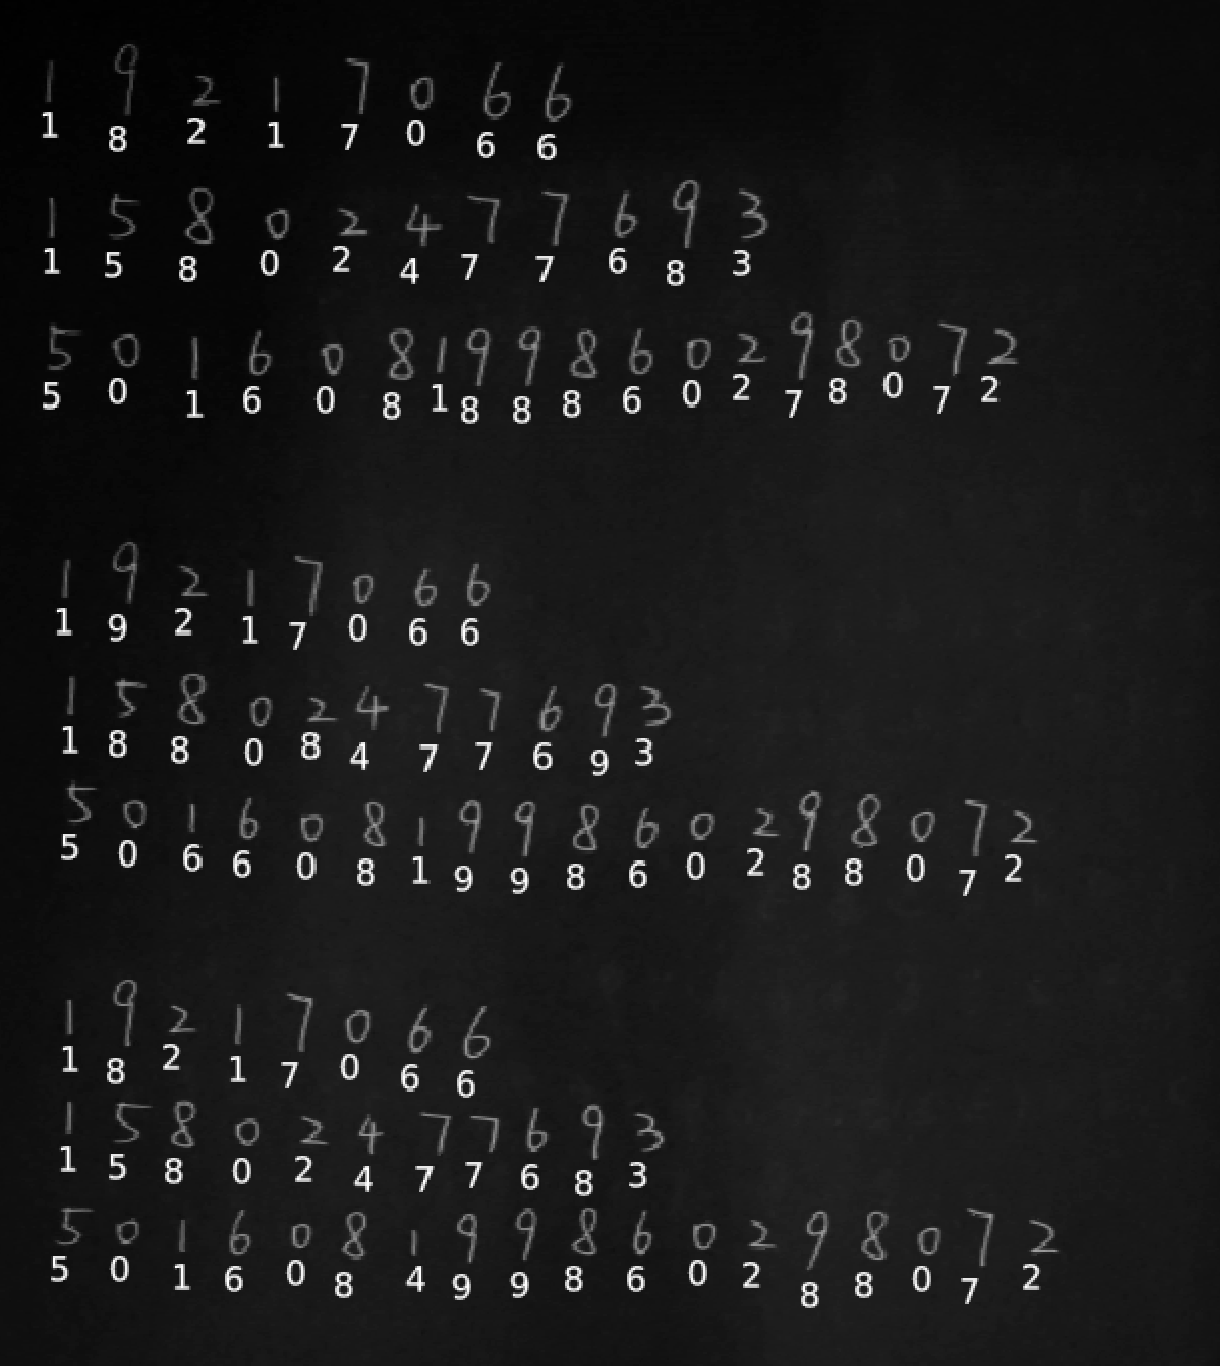 1 9 2 1 7 0 6 6
1 8 2 1 7 0 6 6
1 5 8 0 2 4 7 7 6 9 3
1 5 8 0 2 4 7 7 6 8 3
5 0 1 6 0 8 1 9 9 8 6 0 2 9 8 0 7 2
5 0 1 6 0 8 1 8 8 8 6 0 2 7 8 0 7 2
1 9 2 1 7 0 6 6
1 9 2 1 7 0 6 6
1 5 8 0 2 4 7 7 6 9 3
1 8 8 0 8 4 7 7 6 9 3
5 0 1 6 0 8 1 9 9 8 6 0 2 9 8 0 7 2
5 0 6 6 0 8 1 9 9 8 6 0 2 8 8 0 7 2
1 9 2 1 7 0 6 6
1 8 2 1 7 0 6 6
1 5 8 0 2 4 7 7 6 9 3
1 5 8 0 2 4 7 7 6 8 3
5 0 1 6 0 8 1 9 9 8 6 0 2 9 8 0 7 2
5 0 1 6 0 8 4 9 9 8 6 0 2 8 8 0 7 2